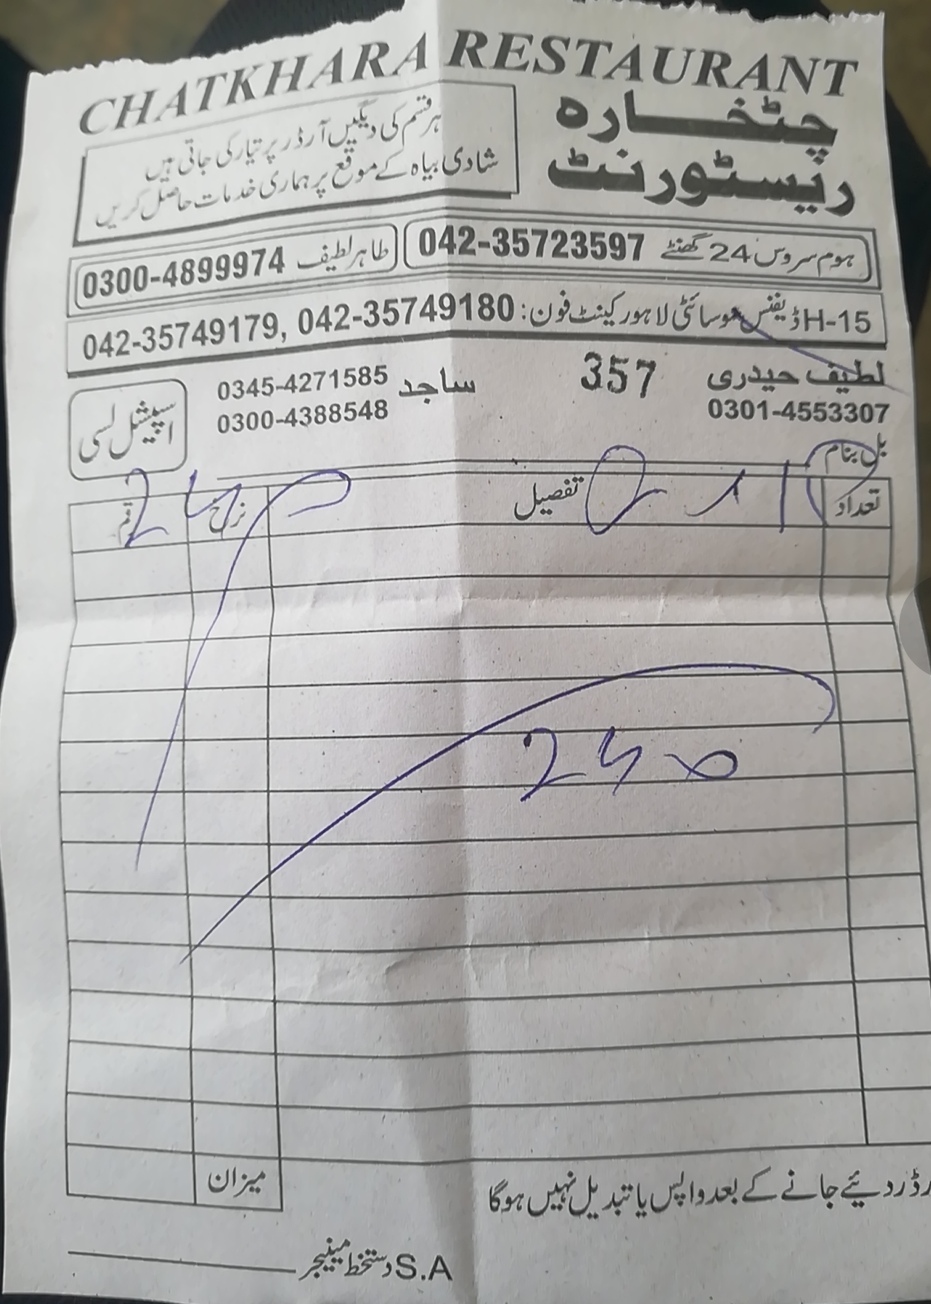 CHATKHARA RESTAURANT
چٹخارہ
ریسٹورنٹ
ہر قسم کی دیگیں آرڈر پر تیار کی جاتی ہیں
شادی بیاہ کے موقع پر ہماری خدمات حاصل کریں
ہوم سروس 24 گھنٹے 042-35723597
طاہر لطیف 0300-4899974
H-15 ڈیفنس سوسائٹی لاہور کینٹ فون: 042-35749179, 042-35749180
لطیف حیدری 0301-4553307
357
ساجد 0345-4271585
0300-4388548
اسپیشل لسی
بل بنام
تعداد تفصیل نرخ رقم
میزان
رڈر دیئے جانے کے بعد واپس یا تبدیل نہیں ہوگا
S.A دستخط مینیجر